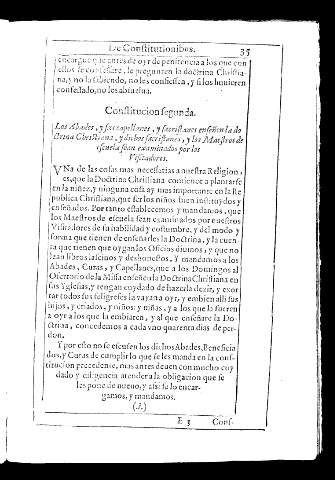 De Constitutionibus. 35
encargue q̃ antes de oyr de penitencia a los que con
ellos se confessarẽ, le pregunten la doctrina Christia-
na, y no la sabiendo, no les confiessen, y si los huuieren
confessado, no les absueluã.
Constitucion segunda.
Los Abades, y sacapellanes, y sacristanes enseñen la do
ctrina Christiana, y dichos sacristanes, y los Maestros de
escuela sean examinados por los
Visitadores.
VNa de las cosas mas necessarias a nuestra Religion,
es, que la Doctrina Christiana comience a plantarse
en la niñez, y ninguna cosa ay mas importante en la Re
publica Christiana, que ser los niños bien instruydos y
enseñados. Por tanto establecemos y mandamos, que
los Maestros de escuela sean examinados por nuestros
Visitadores de su habilidad y costumbre, y del modo y
forma que tienen de enseñarles la Doctrina, y la cuen-
ta que tienen que oygan los Oficios diuinos, y que no
lean libros lasciuos y deshonestos, Y mandamos a los
Abades, Curas, y Capellanes, que a los Domingos al
Ofertorio de la Missa enseñen la Doctrina Christiana en
sus Yglesias, y tengan cuydado de hazerla dezir, y exor
tar todos sus feligreses la vayan a oyr, y embien alli sus
hijos, y criados, y niños: y niñas, y a los que la fueren
a oyr a los que la embiaren, y al que enseñare la Do-
ctrina, concedemos a cada vno quarenta dias de per-
don.
Y por esto no se escusen los dichos Abades, Beneficia
dos, y Curas de cumplir lo que se les manda en la cons-
titucion precedente, mas antes deuen con mucho cuy
dado y diligencia atender a la obligacion que se
les pone de nueuo, y assi se lo encar-
gamos, y mandamos.
E 3 Cons-